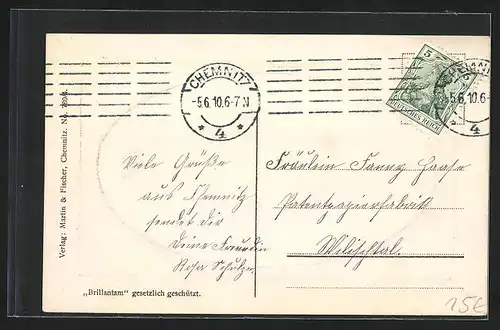 CHEMNITZ
-5.6.10.6-7N
* 4 *
5
DEUTSCHES REICH
CHEMNITZ
-5.6.10.6-
* 4
Viele Grüße
aus Chemnitz
sendet dir
Deine Freundin
Rosa Schulze
Fräulein Fanny Haase
Patentpapierfabrik
Wilischtal.
Verlag: Martin & Fischer, Chemnitz. No.
„Brillantam“ gesetzlich geschützt.
15€